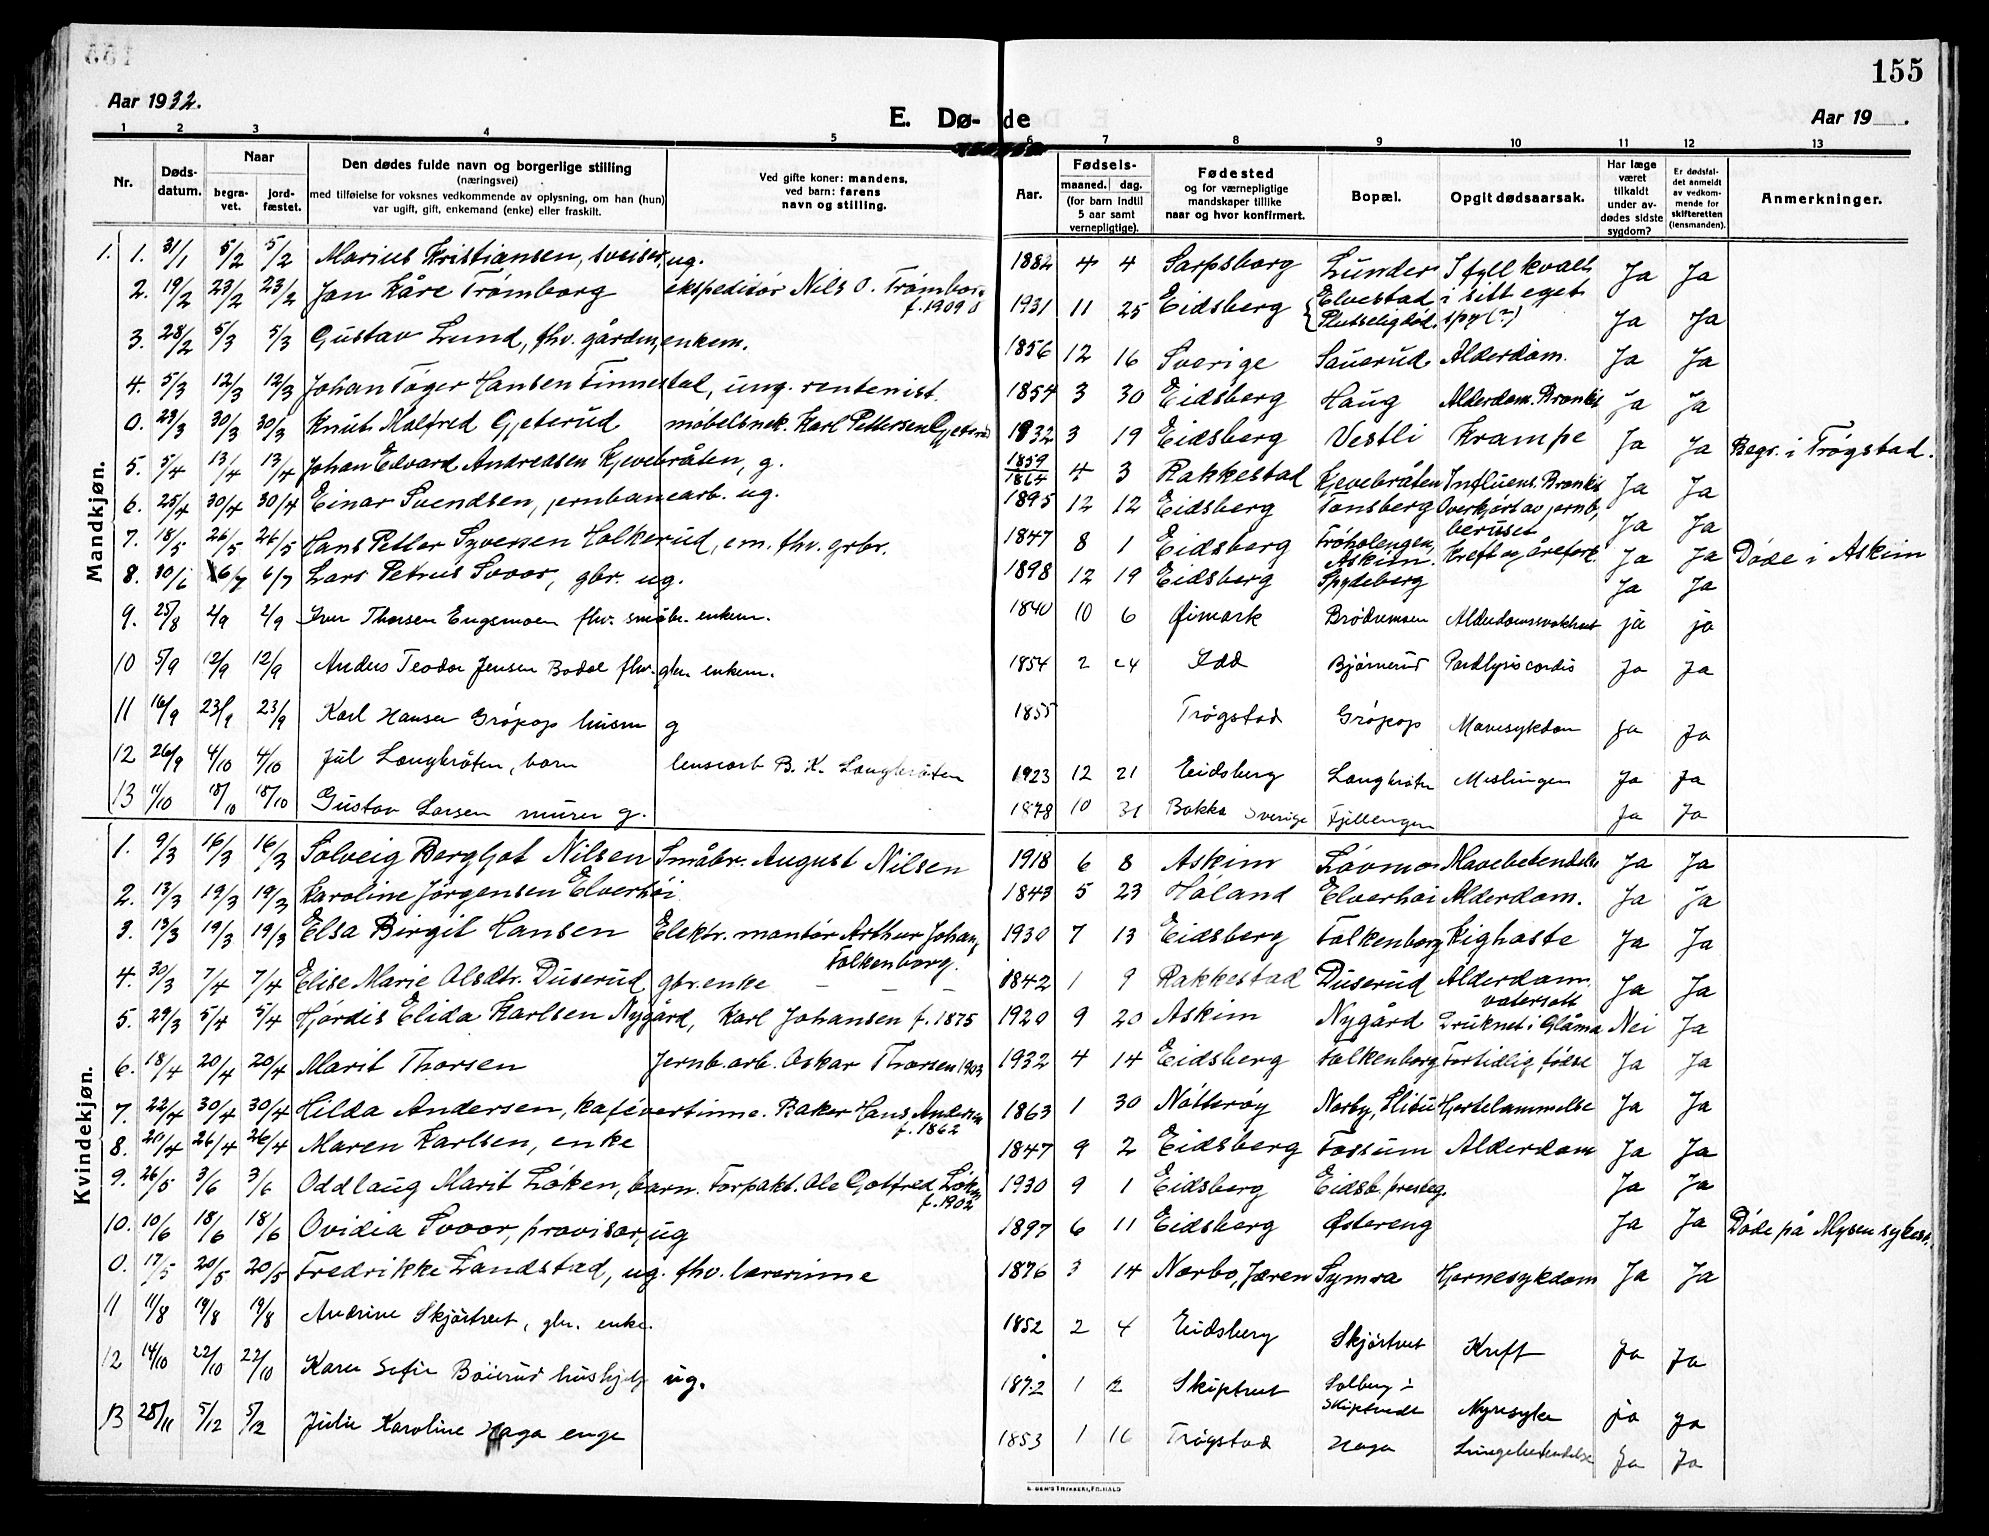 155
Aar 1932.
E. Dø- de
Aar 19 .
1 2 3 4 5 6 7 8 9 10 11 12 13
Nr.
Døds-
datum.
Naar
begra-
vet.
jord-
fæstet.
Den dødes fulde navn og borgerlige stilling
(næringsvei)
med tilføielse for voksnes vedkommende av oplysning, om han (hun)
var ugift, gift, enkemand (enke) eller fraskilt.
Ved gifte koner: mandens,
ved barn: farens
navn og stilling.
Aar.
Fødsels-
maaned. dag.
(for barn indtil
5 aar samt
vernepligtige).
Fødested
og for værnepligtige
mandskaper tillike
naar og hvor konfirmert.
Bopæl.
Opgit dødsaarsak.
Har læge
været
tilkaldt
under av-
dødes sidste
sygdom?
Er dødsfal-
det anmeldt
av vedkom-
mende for
skifteretten
(lensmanden).
Anmerkninger.
Mandkjøn.
1. 1. 31/1 5/2 5/2 Marius Kristiansen, sveiser, ug. 1882 4 4 Sarpsborg Lunder I fyll kvalt i sitt eget spy (?) Ja Ja
2. 19/2 23/2 23/2 Jan Kåre Trømborg ekspeditør Nils O. Trømborg f. 1909 1931 11 25 Eidsberg Elvestad Plutselig død. Ja Ja
3. 28/2 5/3 5/3 Gustav Lund, fhv. gårdm, enkem. 1856 12 16 Sverige Sauerud Alderdom. Ja Ja
4. 5/3 12/3 12/3 Johan Tøger Hansen Finnestad, ung. rentenist. 1854 3 30 Eidsberg Haug Alderdom. Bronkit Ja Ja
0. 23/3 30/3 30/3 Knut Malfred Gjeterud møbelsnek. Karl Pettersen Gjeterud 1932 3 19 Eidsberg Vestli Krampe Ja Ja Begr. i Trøgstad.
5. 5/4 13/4 13/4 Johan Edvard Andreasen Kjevebråten, g. 1859 1864 4 3 Rakkestad Kjevebråten Influens. Bronkit Ja Ja
6. 25/4 30/4 30/4 Einar Svendsen, jernbanearb. ug. 1895 12 12 Eidsberg Tønsberg Overkjørt av jernb, beruset Ja Ja
7. 18/5 26/5 26/5 Hans Petter Syversen Holkerud, em. fhv. grbr. 1847 8 1 Eidsberg Trøholengen, Askim. Kreft og årefork. Ja Ja Døde i Askim
8. 30/6 6/7 6/7 Lars Petrus Svoor, gbr. ug. 1898 12 19 Eidsberg Spydeberg Ja Ja
9. 25/8 2/9 2/9 Iver Thorsen Engsmoen fhv. småbr. enkem. 1840 10 6 Øimark Brødremoen Alderdomssvakhet ja ja
10 5/9 12/9 12/9 Anders Teodor Jensen Bodal fhv. gbr. enkem. 1854 2 24 Idd Bjørnerud Paralysis cordis Ja Ja
11 16/9 23/9 23/9 Karl Hansen Grøpop husm g 1855 Trøgstad Grøpop Mavesykdom Ja Ja
12 26/9 4/10 4/10 Jul Langbråten, barn lensearb B. K. Langbråten 1923 12 21 Eidsberg Langbråten Meslingen Ja Ja
13 11/10 18/10 18/10 Gustav Larsen murer g. 1878 10 31 Bakka Sverige Fjellengen Ja Ja
Kvindekjøn.
1. 9/3 16/3 16/3 Solveig Bergljot Nilsen Småbr. August Nilsen 1918 6 8 Askim Løvmo Mavebetendelse Ja Ja
2. 13/3 19/3 19/3 Karoline Jørgensen Elverhøi 1843 5 23 Høland Elverhøi Alderdom. Ja Ja
3. 13/3 19/3 19/3 Elsa Birgit Hansen Elektr. montør Arthur Johan, Falkenborg. 1930 7 13 Eidsberg Falkenborg Kighoste Ja Ja
4. 30/3 7/4 7/4 Elise Marie Olsdtr. Duserud gbr. enke — — — 1842 1 9 Rakkestad Duserud Alderdom, vatersott Ja Ja
5. 29/3 5/4 5/4 Hjørdis Elida Karlsen Nygård, Karl Johansen f. 1875 1920 9 20 Askim Nygård Druknet i Glåma Nei Ja
6. 18/4 20/4 20/4 Marit Thorsen Jernb. arb. Oskar Thorsen 1903 1932 4 14 Eidsberg Falkenborg Fortidlig fødse Ja Ja
7. 22/4 30/4 30/4 Hilda Andersen, kafévertinne. Baker Hans Andersen f. 1862 1863 1 30 Nøtterøy Norby, Slitu Hjertelammelse Ja Ja
8. 20/4 26/4 26/4 Maren Karlsen, enke 1847 9 2 Eidsberg Fossum Alderdom Ja Ja
9. 26/5 3/6 3/6 Oddlaug Marit Løken, barn. Forpakt. Ole Gotfred Løken f. 1902 1930 9 1 Eidsberg Eidsb. presteg. Ja Ja
10. 10/6 18/6 18/6 Ovidia Svoor, provisor, ug 1897 6 11 Eidsberg Østereng Ja Ja Døde på Mysen sykeh.
0. 17/5 20/5 20/5 Fredrikke Landstad, ug. fhv. lærerinne 1876 3 14 Nærbo, Jæren Symra Hjernesykdom Ja Ja
11 11/8 19/8 19/8 Andrine Skjørtvet, gbr. enke. 1852 2 4 Eidsberg Skjørtvet Kreft Ja Ja
12 14/10 22/10 22/10 Karen Sofie Bøierud hushjelp ug. 1872 1 2 Skiptvet Solberg i Skiptvedt Nyresyke ja ja
13 28/11 5/12 5/12 Julie Karoline Haga enge 1853 1 16 Trøgstad Haga Lungebetendelse Ja Ja